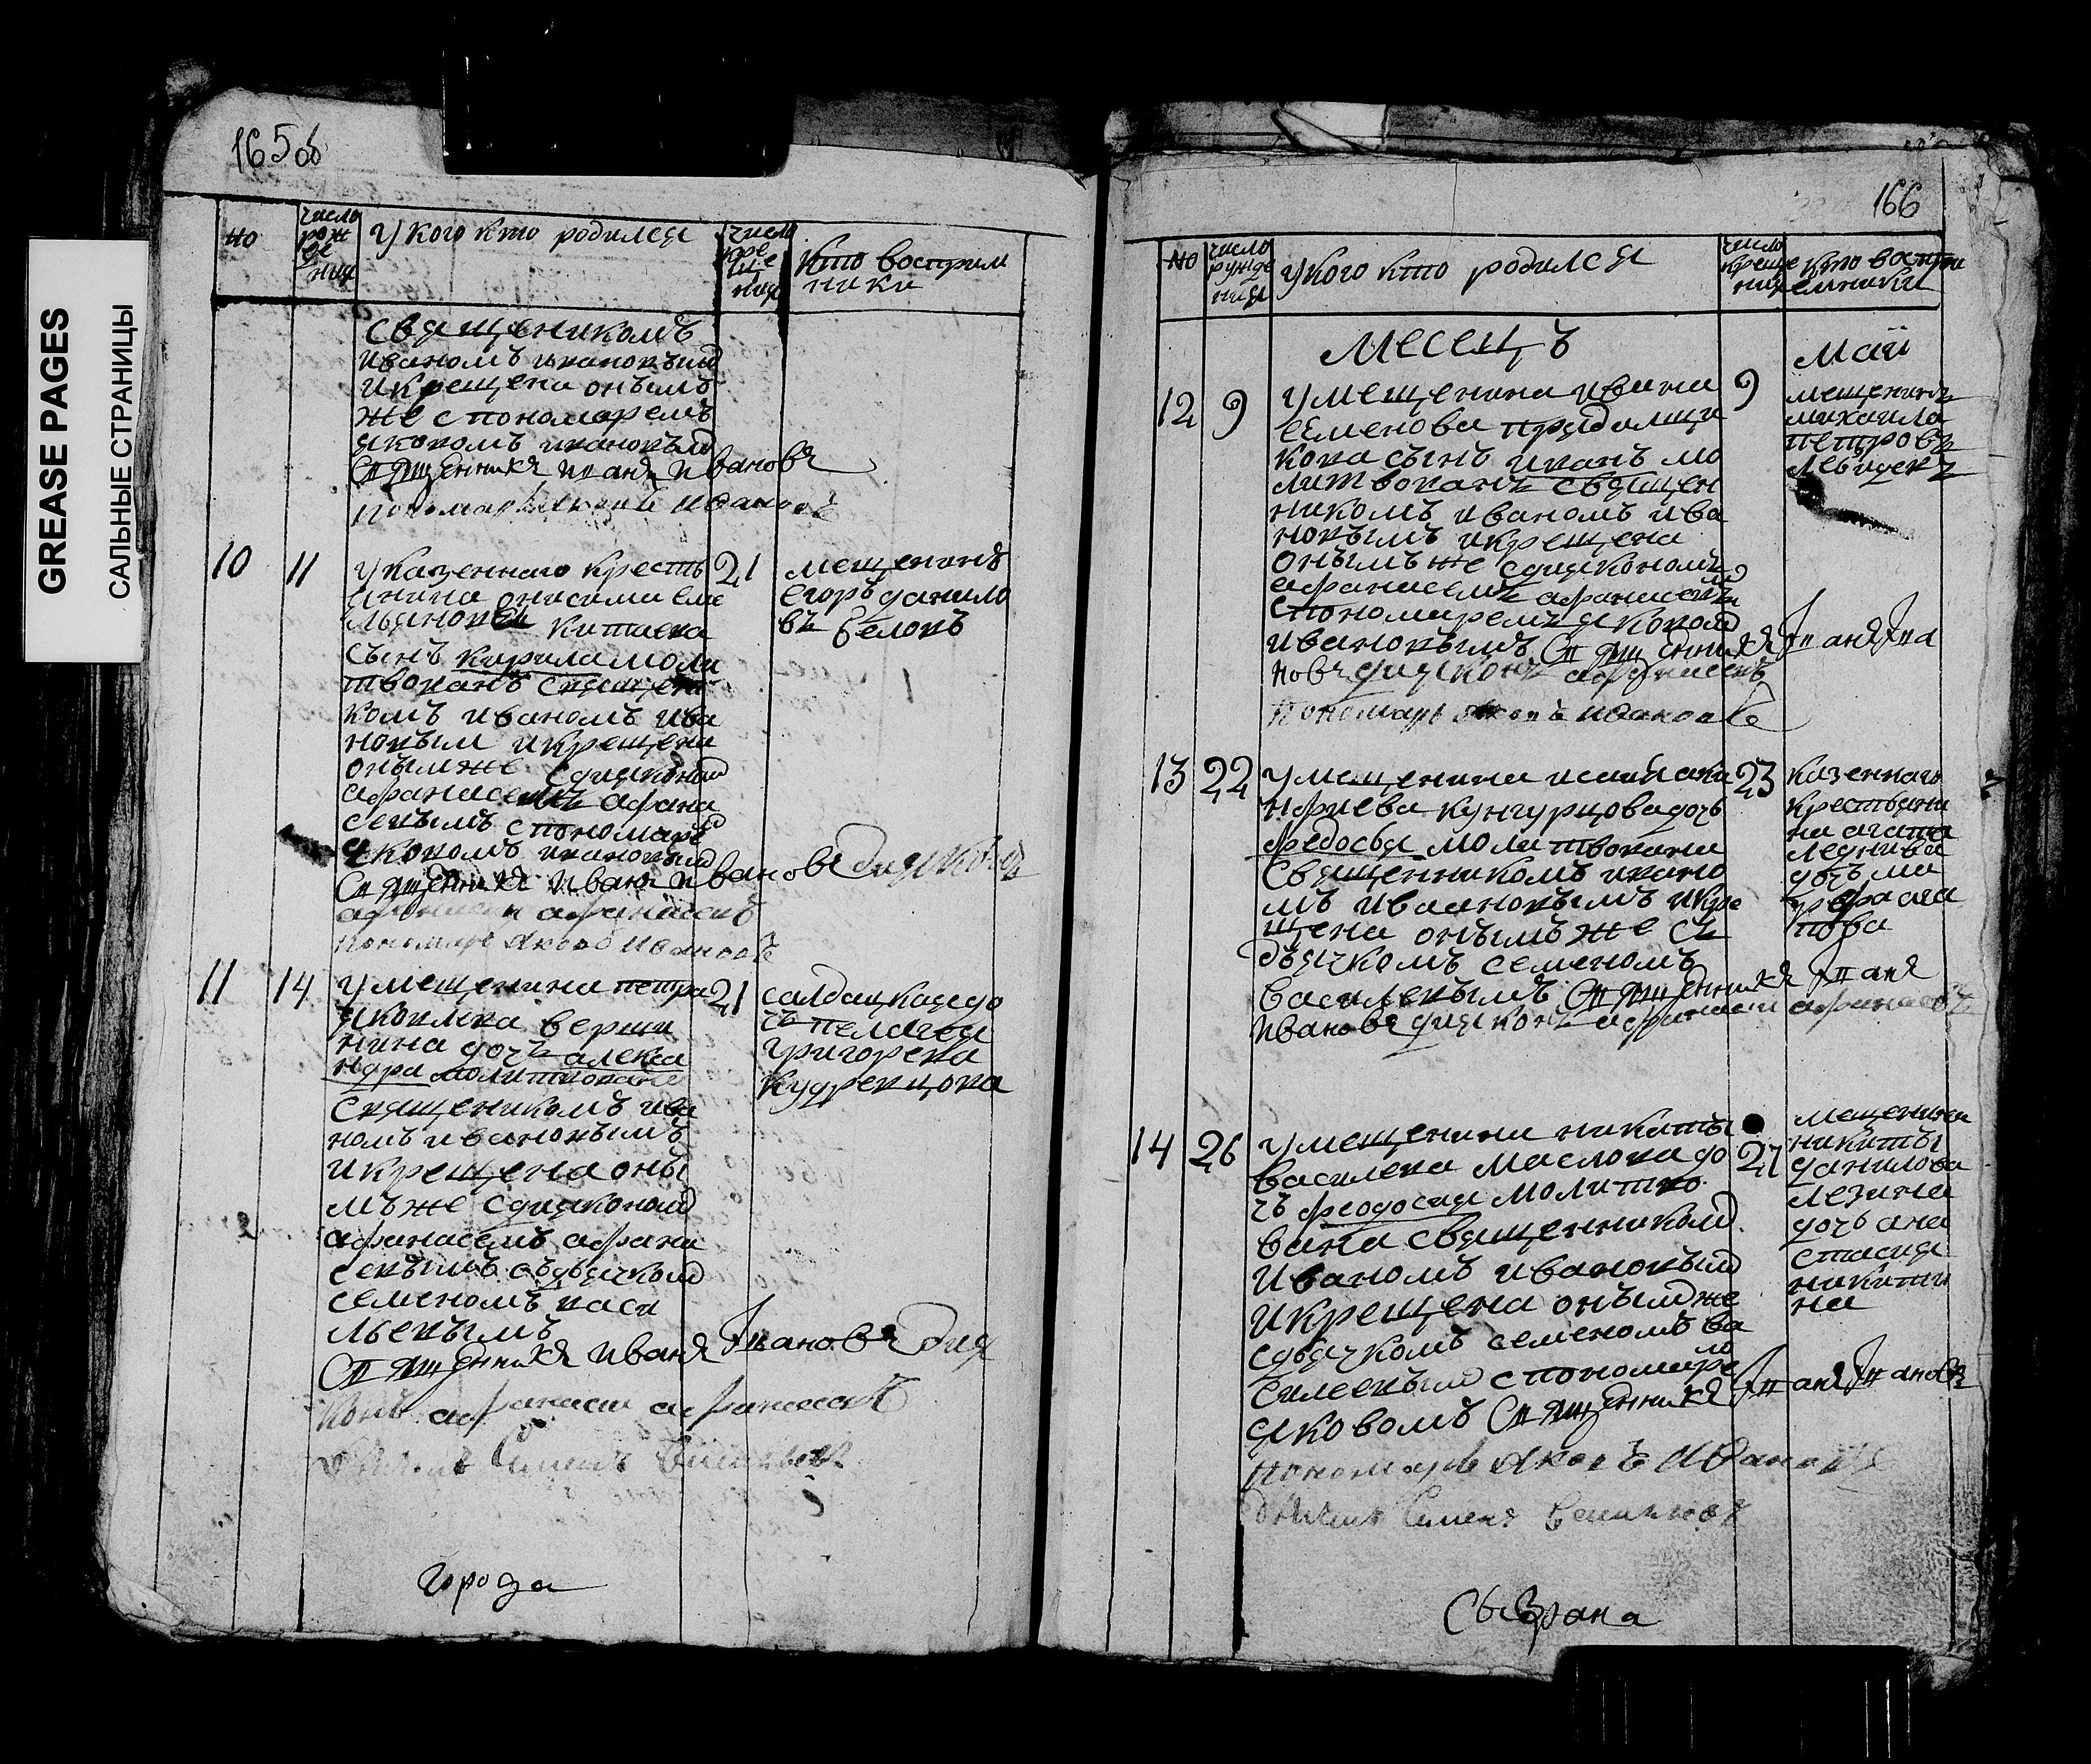 GREASE PAGES
САЛЬНЫЕ СТРАНИЦЫ
165об
но
число рож де ния
у кого кто родился
число кре ще ния
кто восприм ники
священикомъ
иваномъ ивановымъ
и крещена онымъ
же с пономаремъ
яковомъ ивановым
Священникъ Иванъ Ивановъ
пономарь Ивановъ
10
11
у казеннаго кресть
янина онисима еме
льянова китаева
сынъ кирила моли
твованъ священи
комъ иваномъ ива
новым и крещена
оным же с диаконом
афанасемъ афана
севымъ с пономаре
яковомъ ивановым
Священникъ Иванъ Ивановъ диаконъ
афанасеи афанасевъ
пономарь Яковъ Ивановъ
21
мещенинъ
егоръ данило
въ беловъ
11
14
у мещенина петра
яковлева верши
нина дочь алекса
ндра молитвована
священикомъ ива
номъ ивановымъ
и крещена оны
мъ же с диаконом
афанасемъ афана
севымъ съ дьячком
семеномъ васи
льевымъ
Священникъ Иванъ Ивановъ диа
конъ афанасеи афанасевъ
дьячекъ Семенъ Васильевъ
21
салдацкая до
чь пелагея
григорева
кудревцова
города
166
но
число рожде ния
у кого кто родился
число креще ния
кто воспри емники
месецъ
маи
12
9
у мещенина ивана
семенова прядилщи
кова сынъ иванъ мо
литвованъ священ
никомъ иваномъ ива
новымъ и крещена
онымъ же с диакономъ
афанасемъ афанасевым
с пономаремъ яковом
ивановымъ Священникъ Іванъ Іва
новъ диаконъ афанасевъ
пономарь Яковъ Ивановъ
9
мещенинъ
михаила
петровъ
левидевъ
13
22
у мещенина исаи аки
нфиева кунгурцова дочь
федосья молитвована
священникомъ ивано
мъ ивановымъ и кре
щена онымъ же съ
дьячкомъ семеномъ
василевымъ Священникъ Іванъ
Ивановъ диаконъ афанасеи афанасевъ
23
казеннаго
крестьяни
на агапа
леднева
дочь ма
рфа ага
пова
14
26
у мещенина никиты
василева маслова до
чь феодосия молитво
вана священником
Иваномъ ивановым
и крещена оным же
с дьячкомъ семеномъ ва
силевым с пономаремъ
яковомъ Священникъ Іванъ Івановъ
пономарь Яковъ Ивановъ
дьячекъ Семенъ Васильевъ
27
мещенина
никиты
данилова
лезина
дочь ана
стасия
никити
на
Сызрана